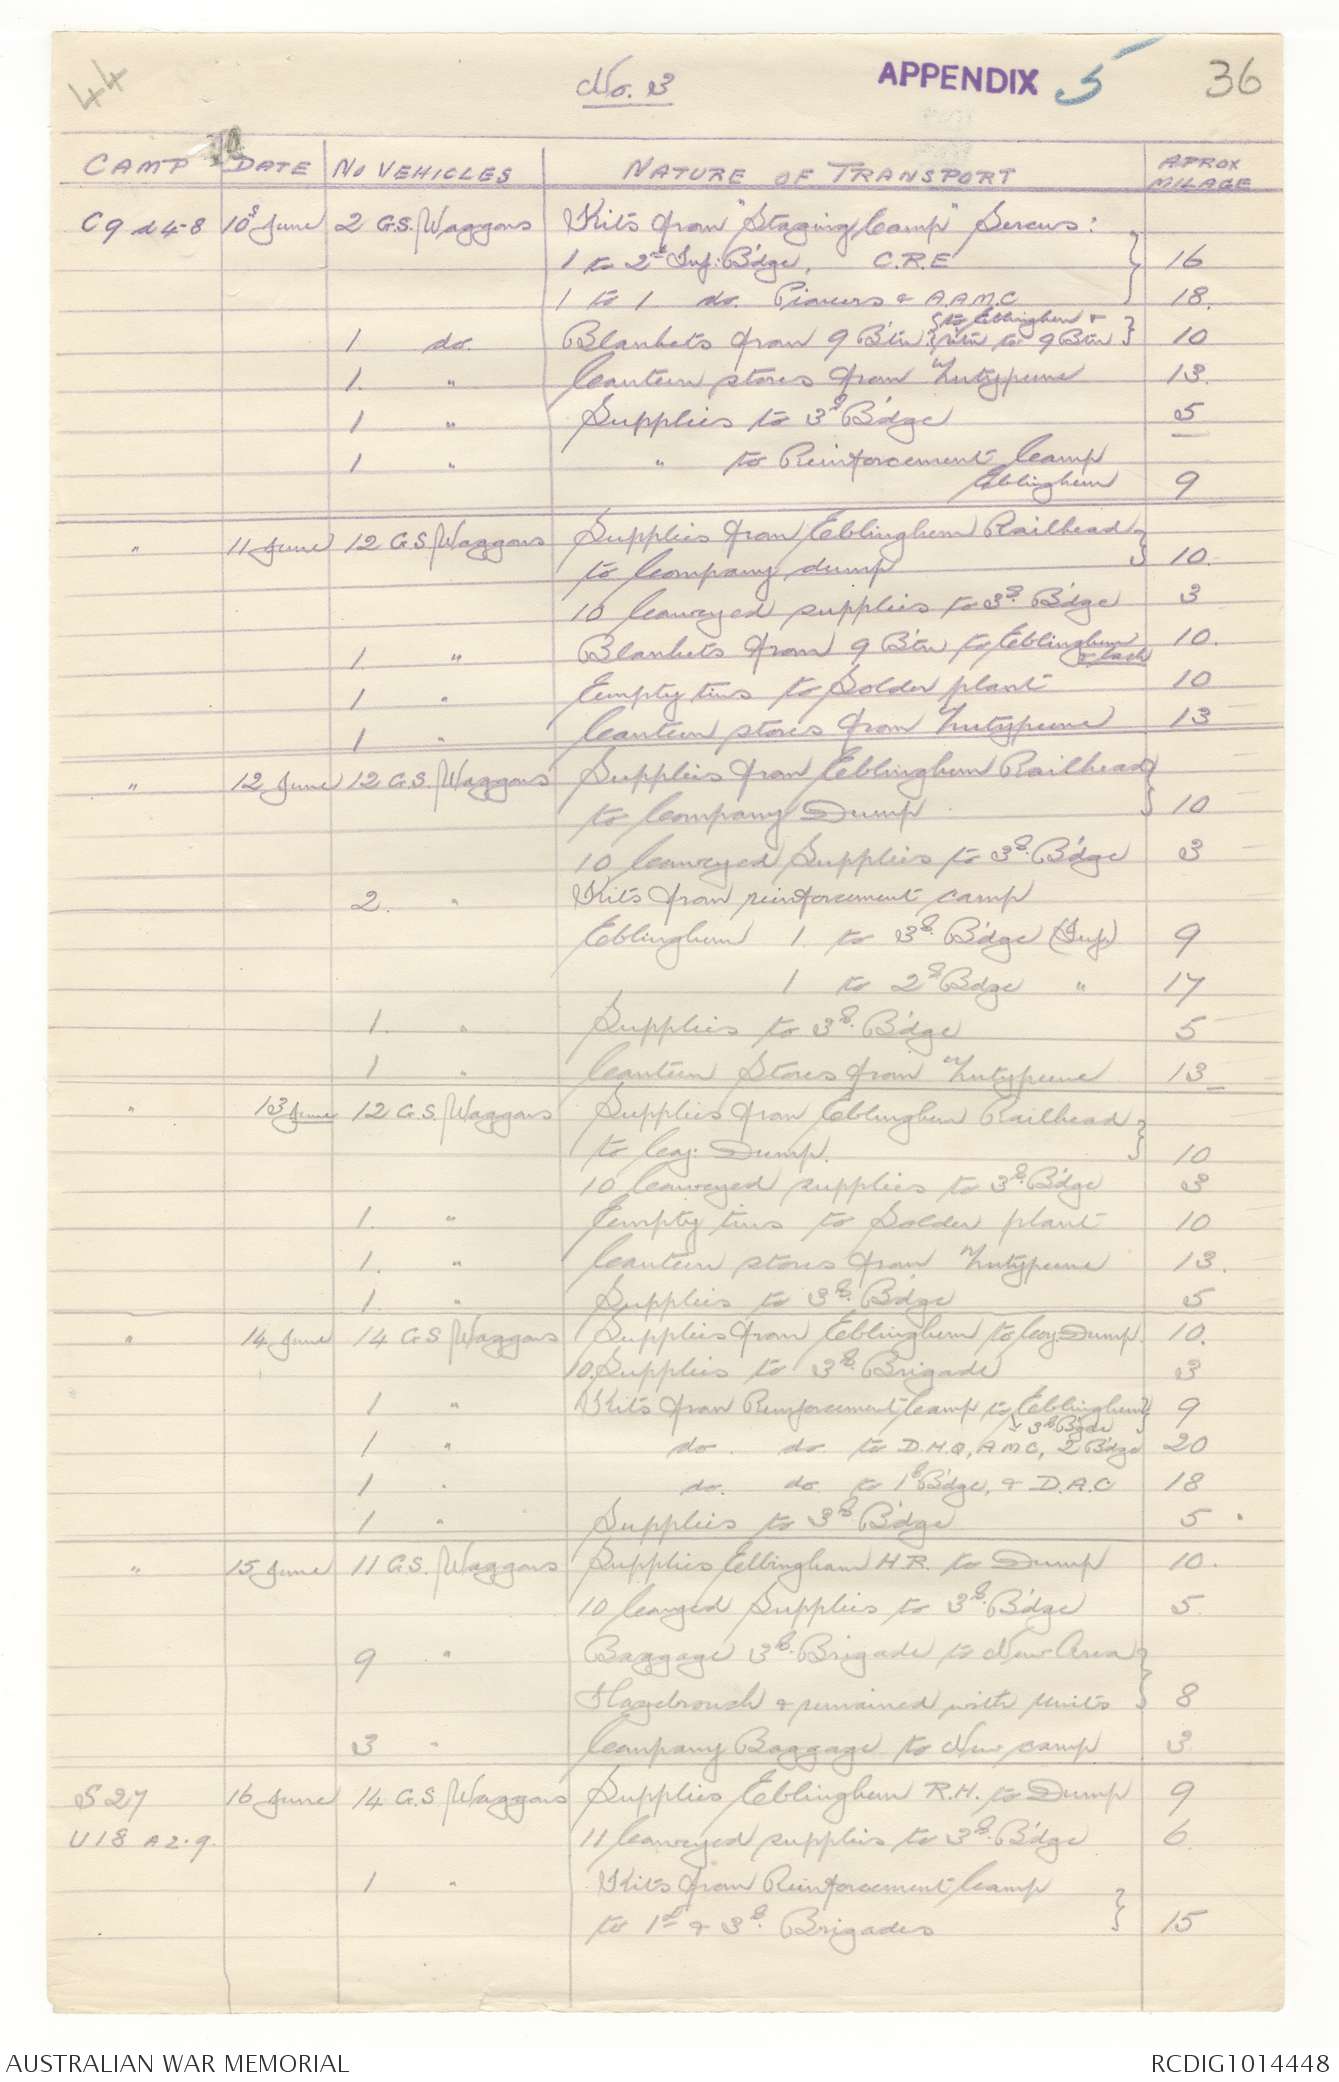 44
No. 3
APPENDIX 5
36
CAMP DATE No VEHICLES NATURE OF TRANSPORT APROX MILAGE
C9 d 4-8 10 June 2 G.S. Waggons Kits from "Staging Camp" Sercus:
1 to 2nd Inf: B'dge, C.R.E } 16
1 to 1 do. Pioneers & A.A.M.C } 18.
1 do. Blankets from 9 B'tn { to Ebblinghem & rtn to 9 Btn } 10
1. " Canteen stores from 13.
1 " Supplies to 3rd B'dge 5
1 " " to Reinforcement Camp
Ebblinghem 9
" 11 June 12 G.S. Waggons Supplies from Ebblinghem Railhead }
to Company dump } 10.
10 Conveyed supplies to 3rd B'dge 3
1. " Blankets from 9 Btn to Ebblinghem & back 10.
1 " Empty tins to Solder plant 10
1 " Canteen stores from 13
" 12 June 12 G.S. Waggons Supplies from Ebblinghem Railhead }
to Company Dump } 10
10 Conveyed Supplies to 3rd B'dge 3
2. " Kits from reinforcement camp
Ebblinghem 1. to 3rd B'dge (Inf) 9
1 to 2nd Bdge " 17
1. " Supplies to 3rd B'dge 5
1 " Canteen Stores from 13
" 13 June 12 G.S. Waggons Supplies from Ebblinghem Railhead }
to Coy: Dump. } 10
10 Conveyed supplies to 3rd B'dge 3
1. " Empty tins to Solder plant 10
1. " Canteen stores from 13.
1. " Supplies to 3rd B'dge 5
" 14 June 14 G.S Waggons Supplies from Ebblinghem to Coy: Dump. 10.
10 Supplies to 3rd Brigade 3
1 " Kits from Reinforcement Camp to Ebblinghem } 9
& 3rd B'gde
1 " do. do. to D.H.Q, A.M.C, 2 B'dge 20
1 " do. do. to 1st B'dge, & D.A.C 18
1 " Supplies to 3rd B'dge 5
" 15 June 11 G.S. Waggons Supplies Ebbingham H.R. to Dump 10.
10 Supplies to 3rd B'dge 5
9 " Baggage 3rd Brigade to New Area }
Hazebrouck & remained with Units } 8
3 " Company Baggage to New camp 3
S 27 16 June 14 G.S Waggons Supplies Ebblinghem R.H. to Dump 9
U18 A 2.9. 11 Conveyed supplies to 3rd B'dge 6
1 " Kits from Reinforcement Camp }
to 1st & 3rd Brigades } 15
AUSTRALIAN WAR MEMORIAL RCDIG1014448